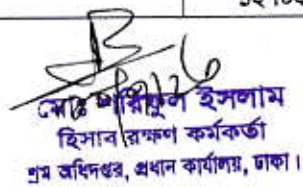 মোঃ শরিফুল ইসলাম
হিসাব রক্ষণ কর্মকর্তা
শ্রম অধিদপ্তর, প্রধান কার্যালয়, ঢাকা।